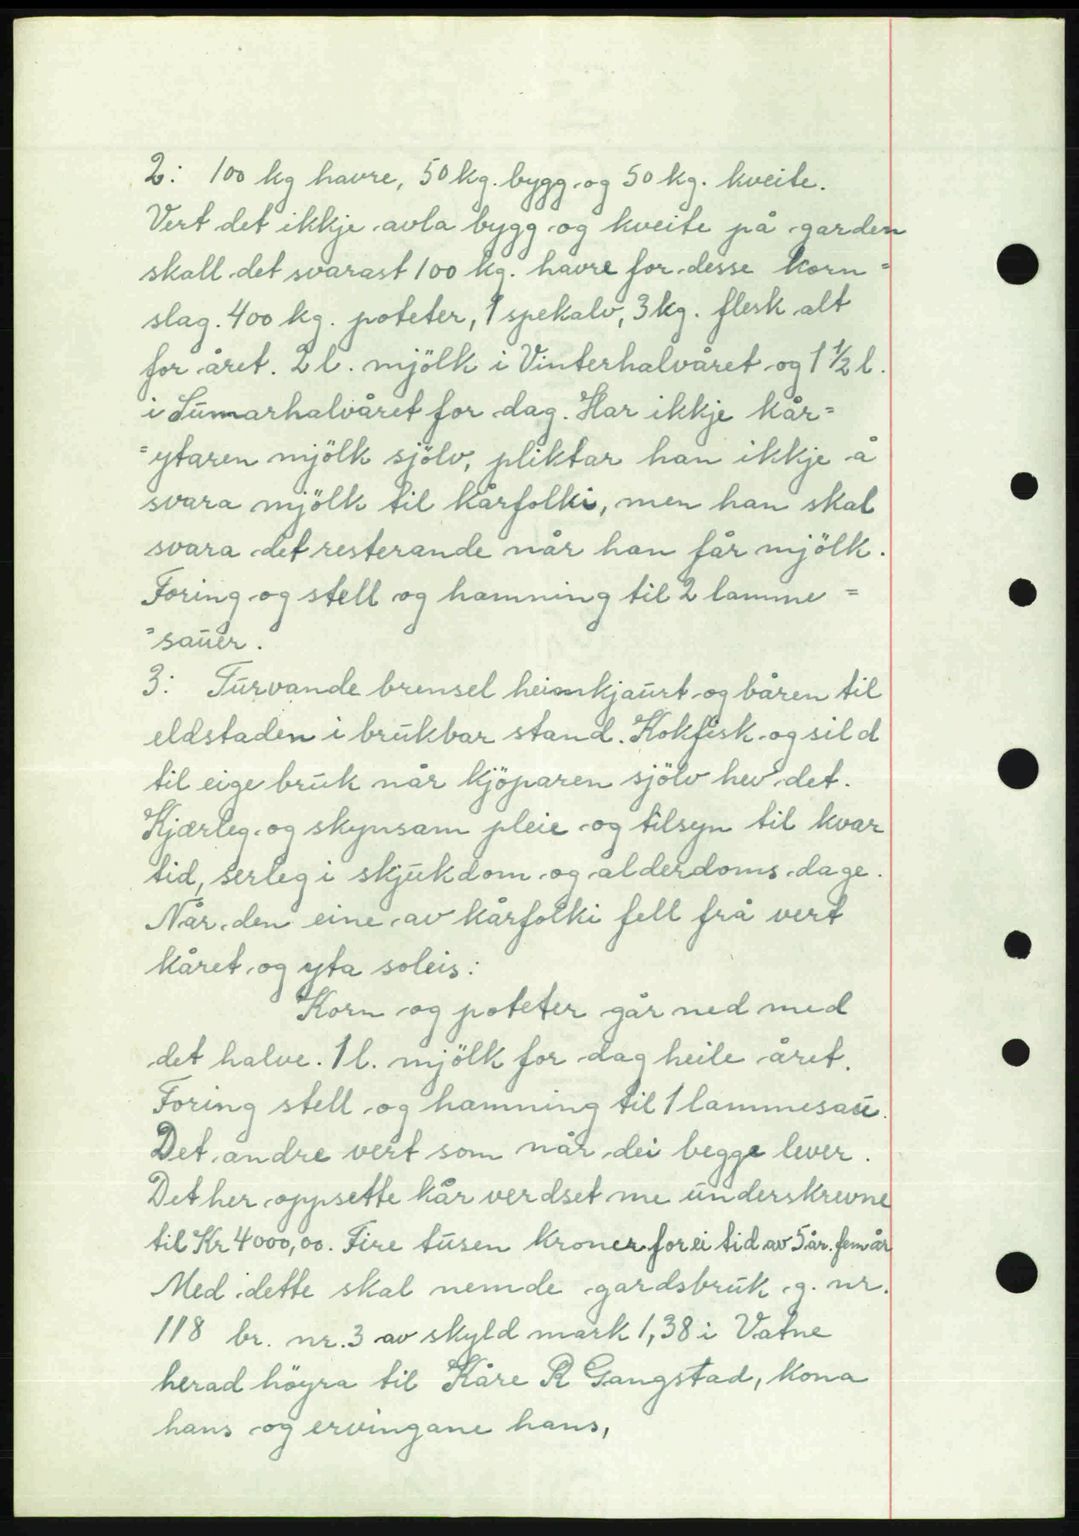 2: 100 kg havre, 50 kg. bygg og 50 kg. kveite.
Vert det ikkje avla bygg og kveite på garden
skall det svarast 100 kg. havre for desse korn=
slag. 400 kg. poteter, 1 spekalv, 3 kg. flesk alt
for året. 2 l. mjölk i Vinterhalvåret og 1 1/2 l.
i Sumarhalvåret for dag. Har ikkje kår=
=ytaren mjölk sjölv, pliktar han ikkje å
svara mjölk til kårfolki, men han skal
svara det resterande når han får mjölk.
Foring og stell og hamning til 2 lamme=
=sauer.
3: Turvande brensel heimkjaurt og båren til
eldstaden i brukbar stand. Kokfisk og sild
til eige bruk når kjöparen sjölv hev det.
Kjærleg og skynsam pleie og tilsyn til kvar
tid, serleg i skjukdom og alderdoms dage.
Når den eine av kårfolki fell frå vert
kåret og yta soleis:
Korn og poteter går ned med
det halve. 1 l. mjölk for dag heile året.
Foring stell og hamning til 1 lammesau.
Det andre vert som når dei begge lever.
Det her oppsette kår verdset me underskrevne
til Kr 4000,00. Fire tusen kroner for ei tid av 5 år. fem år
Med dette skal nemde gardsbruk g. nr.
118 br. nr. 3 av skyld mark 1,38 i Vatne
herad höyra til Kåre R Gangstad, kona
hans og ervingane hans,